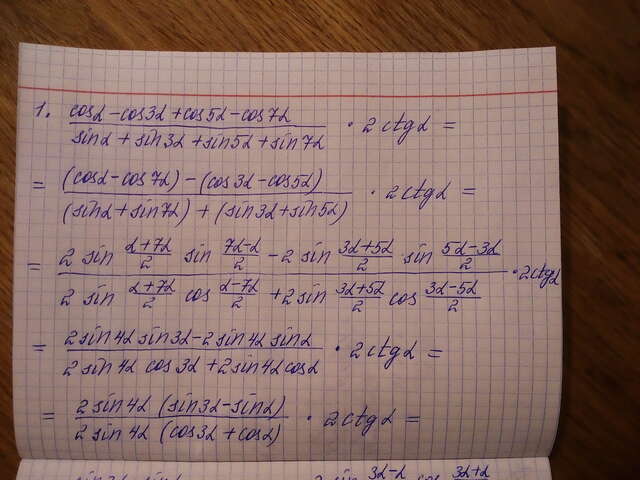 1. (cosα - cos3α + cos5α - cos7α)/(sinα + sin3α + sin5α + sin7α) · 2ctgα =
= ((cosα - cos7α) - (cos3α - cos5α))/((sinα + sin7α) + (sin3α + sin5α)) · 2ctgα =
= (2 sin (α+7α)/2 sin (7α-α)/2 - 2 sin (3α+5α)/2 sin (5α-3α)/2)/(2 sin (α+7α)/2 cos (α-7α)/2 + 2sin (3α+5α)/2 cos (3α-5α)/2) · 2ctgα
= (2sin4α sin3α - 2sin4α sinα)/(2sin4α cos3α + 2sin4α cosα) · 2ctgα =
= (2sin4α (sin3α - sinα))/(2sin4α (cos3α + cosα)) · 2ctgα =